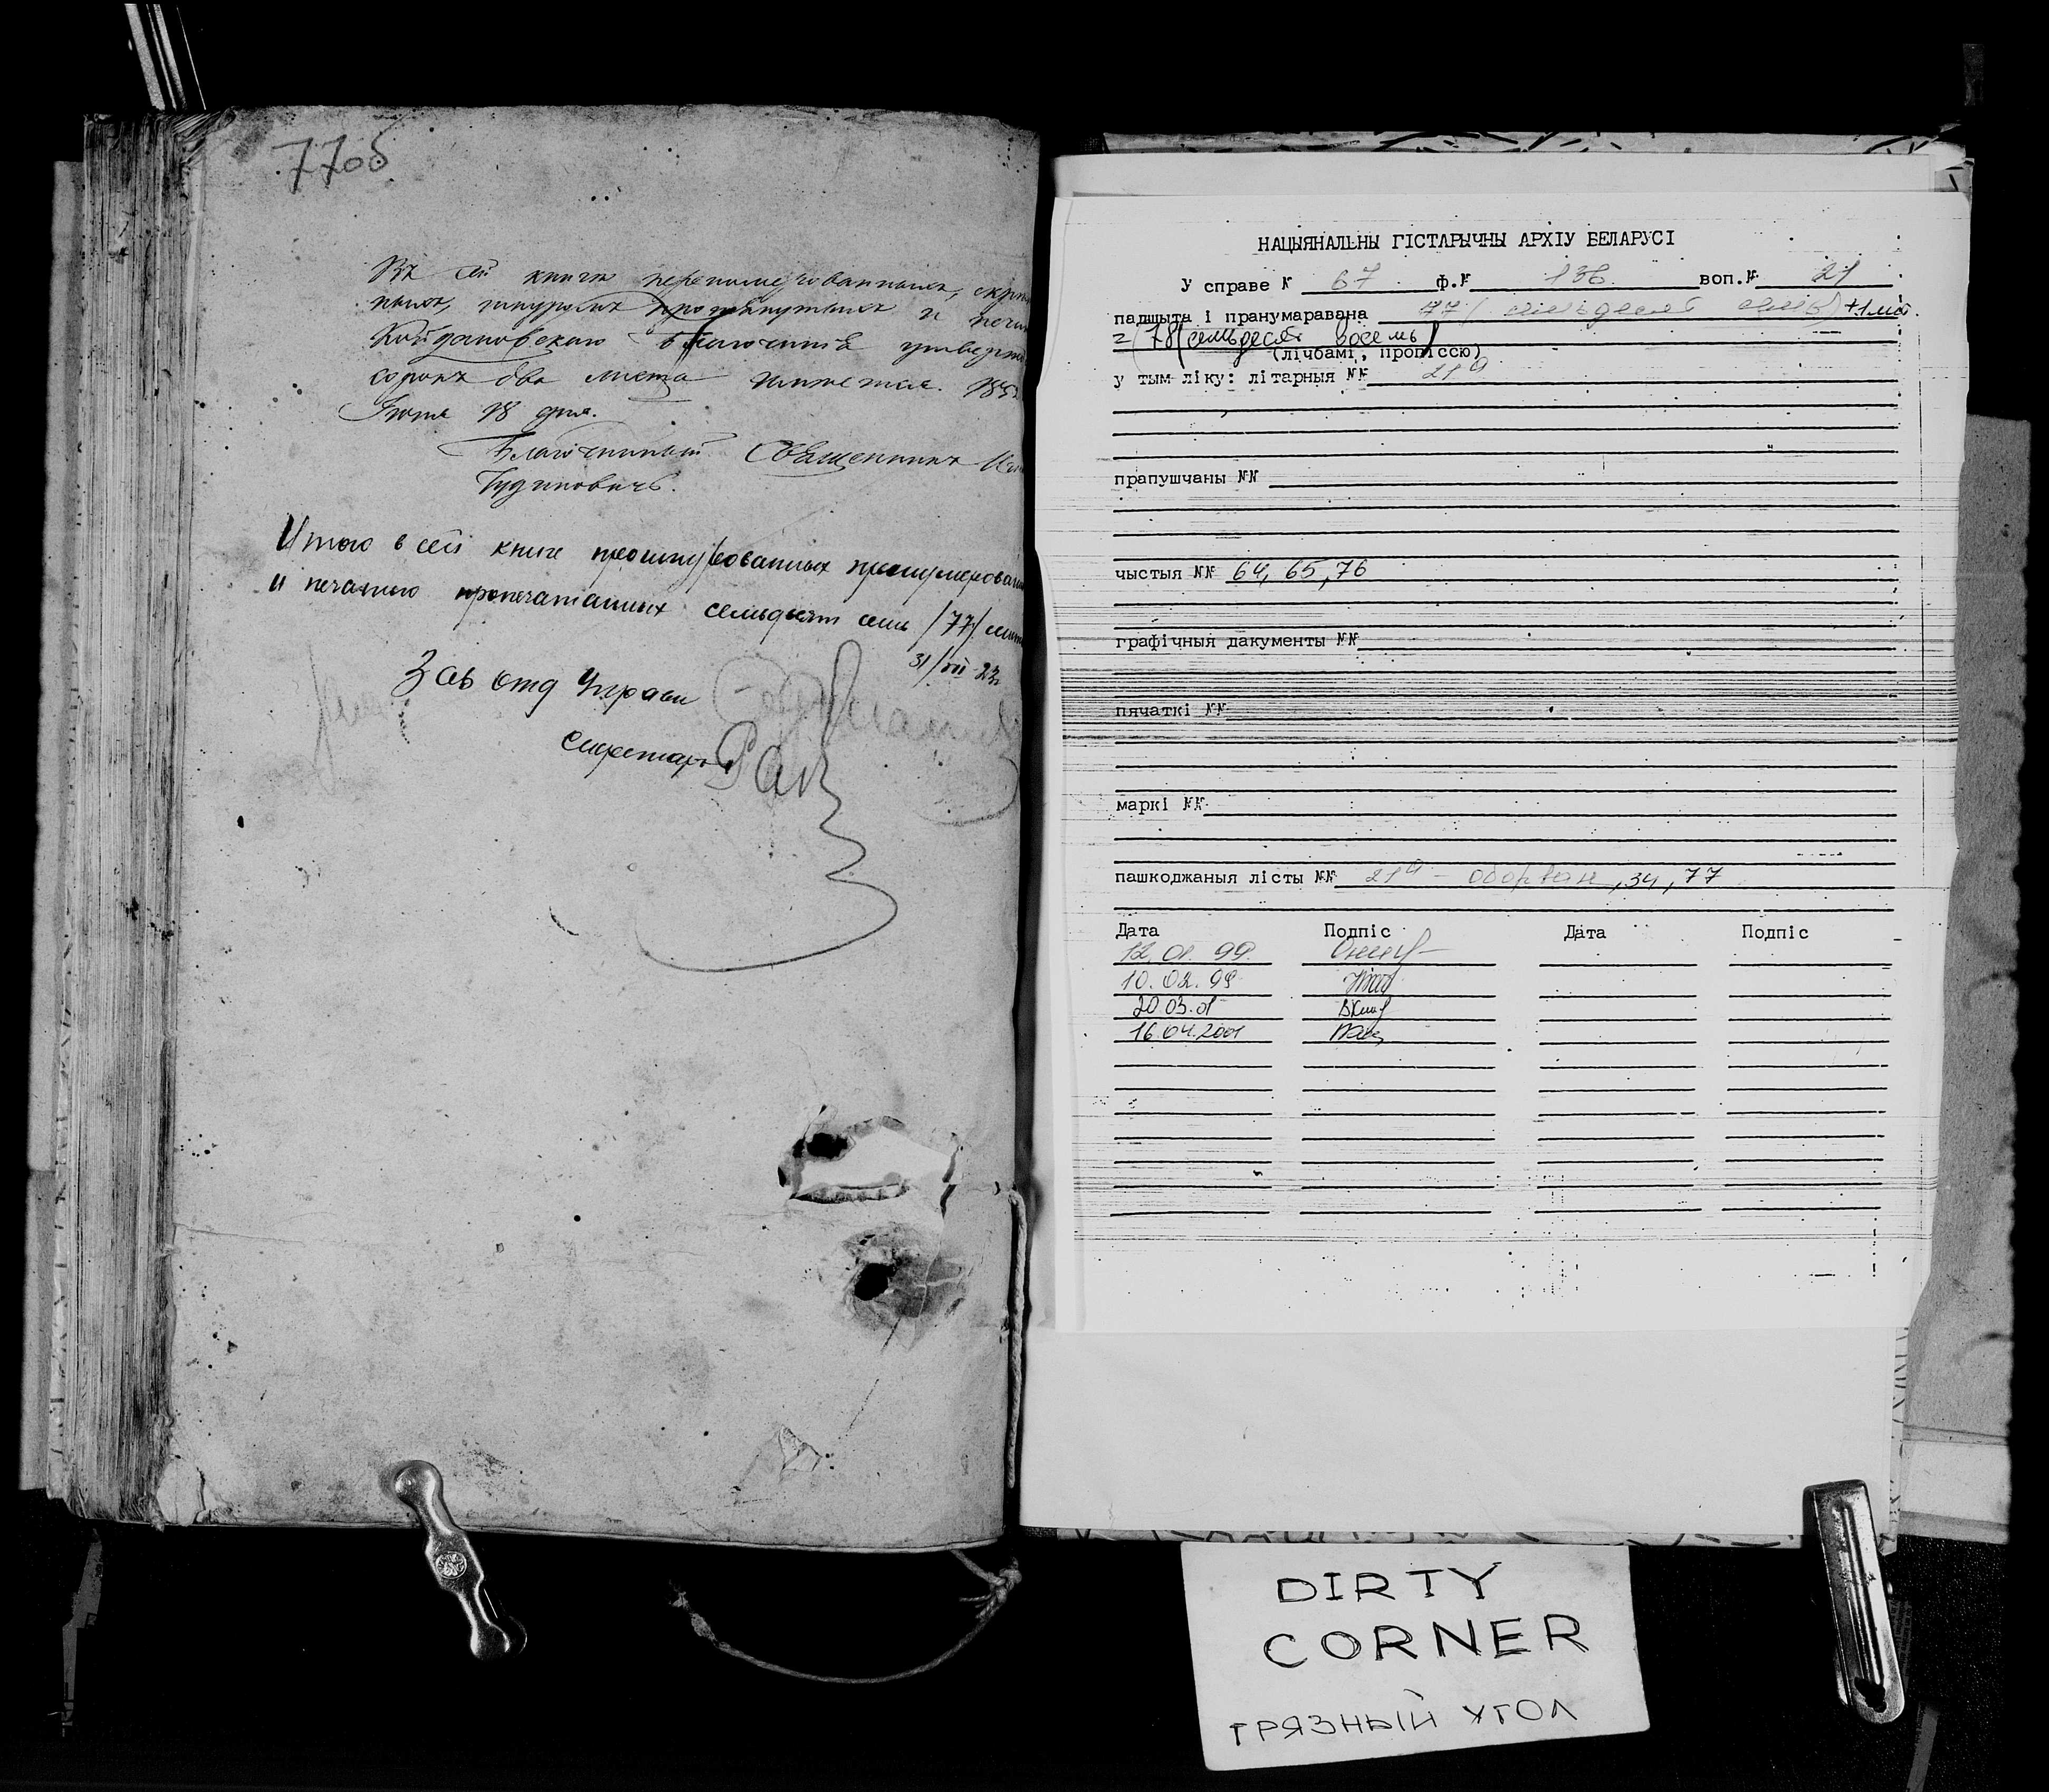 77об
Въ сей книгѣ перенумерованныхъ,
шнуромъ протянутыхъ и
Койдановскаго благочинія
сорокъ два листа
18 дня.
Благочинный Священникъ
Итого в сей книге прошнурованных
и печатью пропечатанных семьдесят семь /77/
31/VII 23
Зав отд Управи
Секретарь
НАЦЫЯНАЛЬНЫ ГІСТАРЫЧНЫ АРХІУ БЕЛАРУСІ
У справе № 67 ф.№ 136 воп.№ 21
падшыта і пранумаравана 77 (семьдесят семь) +1лит.
= 78 (семьдесят восемь)
(лічбамі, пропіссю)
у тым ліку: літарныя №№ 21а
прапушчаны №№
чыстыя №№ 64, 65, 76
графічныя дакументы №№
пячаткі №№
маркі №№
пашкоджаныя лісты №№ 21а - оборван, 34, 77
Дата Подпіс Дата Подпіс
12.01.99
10.02.99
20.03.01
16.04.2001
DIRTY
CORNER
ГРЯЗНЫЙ УГОЛ